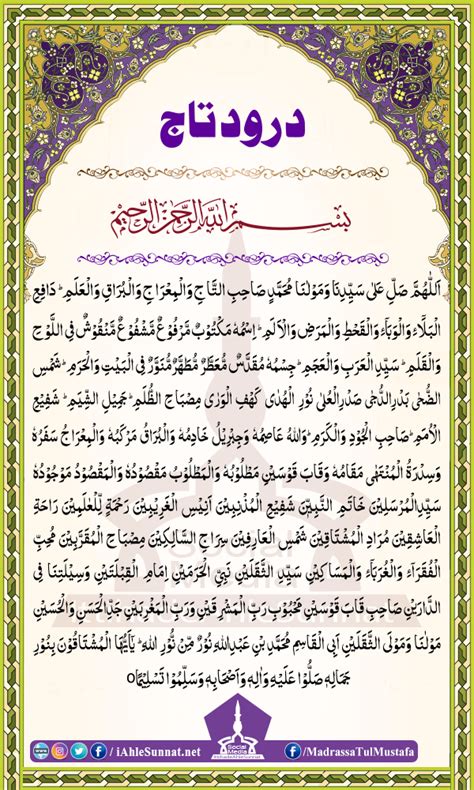 درود تاج
بِسْمِ اللهِ الرَّحْمٰنِ الرَّحِيْمِ
اَللّٰهُمَّ صَلِّ عَلٰی سَيِّدِنَا وَمَوْلٰنَا مُحَمَّدٍ صَاحِبِ التَّاجِ وَالْمِعْرَاجِ وَالْبُرَاقِ وَالْعَلَمِ ؕ دَافِعِ
الْبَلَآءِ وَالْوَبَآءِ وَالْقَحْطِ وَالْمَرَضِ وَالْاَلَمِ ؕ اِسْمُهٗ مَكْتُوْبٌ مَّرْفُوْعٌ مَّشْفُوْعٌ مَّنْقُوْشٌ فِی اللَّوْحِ
وَالْقَلَمِ ؕ سَيِّدِ الْعَرَبِ وَالْعَجَمِ ؕ جِسْمُهٗ مُقَدَّسٌ مُّعَطَّرٌ مُّطَهَّرٌ مُّنَوَّرٌ فِی الْبَيْتِ وَالْحَرَمِ ؕ شَمْسِ
الضُّحٰی بَدْرِ الدُّجٰی صَدْرِ الْعُلٰی نُوْرِ الْهُدٰی كَهْفِ الْوَرٰی مِصْبَاحِ الظُّلَمِ ؕ جَمِيْلِ الشِّيَمِ ؕ شَفِيْعِ
الْاُمَمِ ؕ صَاحِبِ الْجُوْدِ وَالْكَرَمِ ؕ وَاللهُ عَاصِمُهٗ وَجِبْرِيْلُ خَادِمُهٗ وَالْبُرَاقُ مَرْكَبُهٗ وَالْمِعْرَاجُ سَفَرُهٗ
وَسِدْرَةُ الْمُنْتَهٰی مَقَامُهٗ وَقَابَ قَوْسَيْنِ مَطْلُوْبُهٗ وَالْمَطْلُوْبُ مَقْصُوْدُهٗ وَالْمَقْصُوْدُ مَوْجُوْدُهٗ
سَيِّدِ الْمُرْسَلِيْنَ خَاتَمِ النَّبِيّنَ شَفِيْعِ الْمُذْنِبِيْنَ اَنِيْسِ الْغَرِيْبِيْنَ رَحْمَةٍ لِّلْعٰلَمِيْنَ رَاحَةِ
الْعَاشِقِيْنَ مُرَادِ الْمُشْتَاقِيْنَ شَمْسِ الْعَارِفِيْنَ سِرَاجِ السَّالِكِيْنَ مِصْبَاحِ الْمُقَرَّبِيْنَ مُحِبِّ
الْفُقَرَآءِ وَالْغُرَبَآءِ وَالْمَسَاكِيْنَ سَيِّدِ الثَّقَلَيْنِ نَبِیِّ الْحَرَمَيْنِ اِمَامِ الْقِبْلَتَيْنِ وَسِيْلَتِنَا فِی
الدَّارَيْنِ صَاحِبِ قَابَ قَوْسَيْنِ مَحْبُوْبِ رَبِّ الْمَشْرِقَيْنِ وَرَبِّ الْمَغْرِبَيْنِ جَدِّ الْحَسَنِ وَالْحُسَيْنِ
مَوْلٰنَا وَمَوْلَی الثَّقَلَيْنِ اَبِی الْقَاسِمِ مُحَمَّدِ بْنِ عَبْدِاللهِ نُوْرٍ مِّنْ نُّوْرِ اللهِ ؕ يٰۤاَيُّهَا الْمُشْتَاقُوْنَ بِنُوْرِ
جَمَالِهٖ صَلُّوْا عَلَيْهِ وَاٰلِهٖ وَاَصْحَابِهٖ وَسَلِّمُوْا تَسْلِيْمًا
/ iAhleSunnat.net
Social Media
/MadrassaTulMustafa